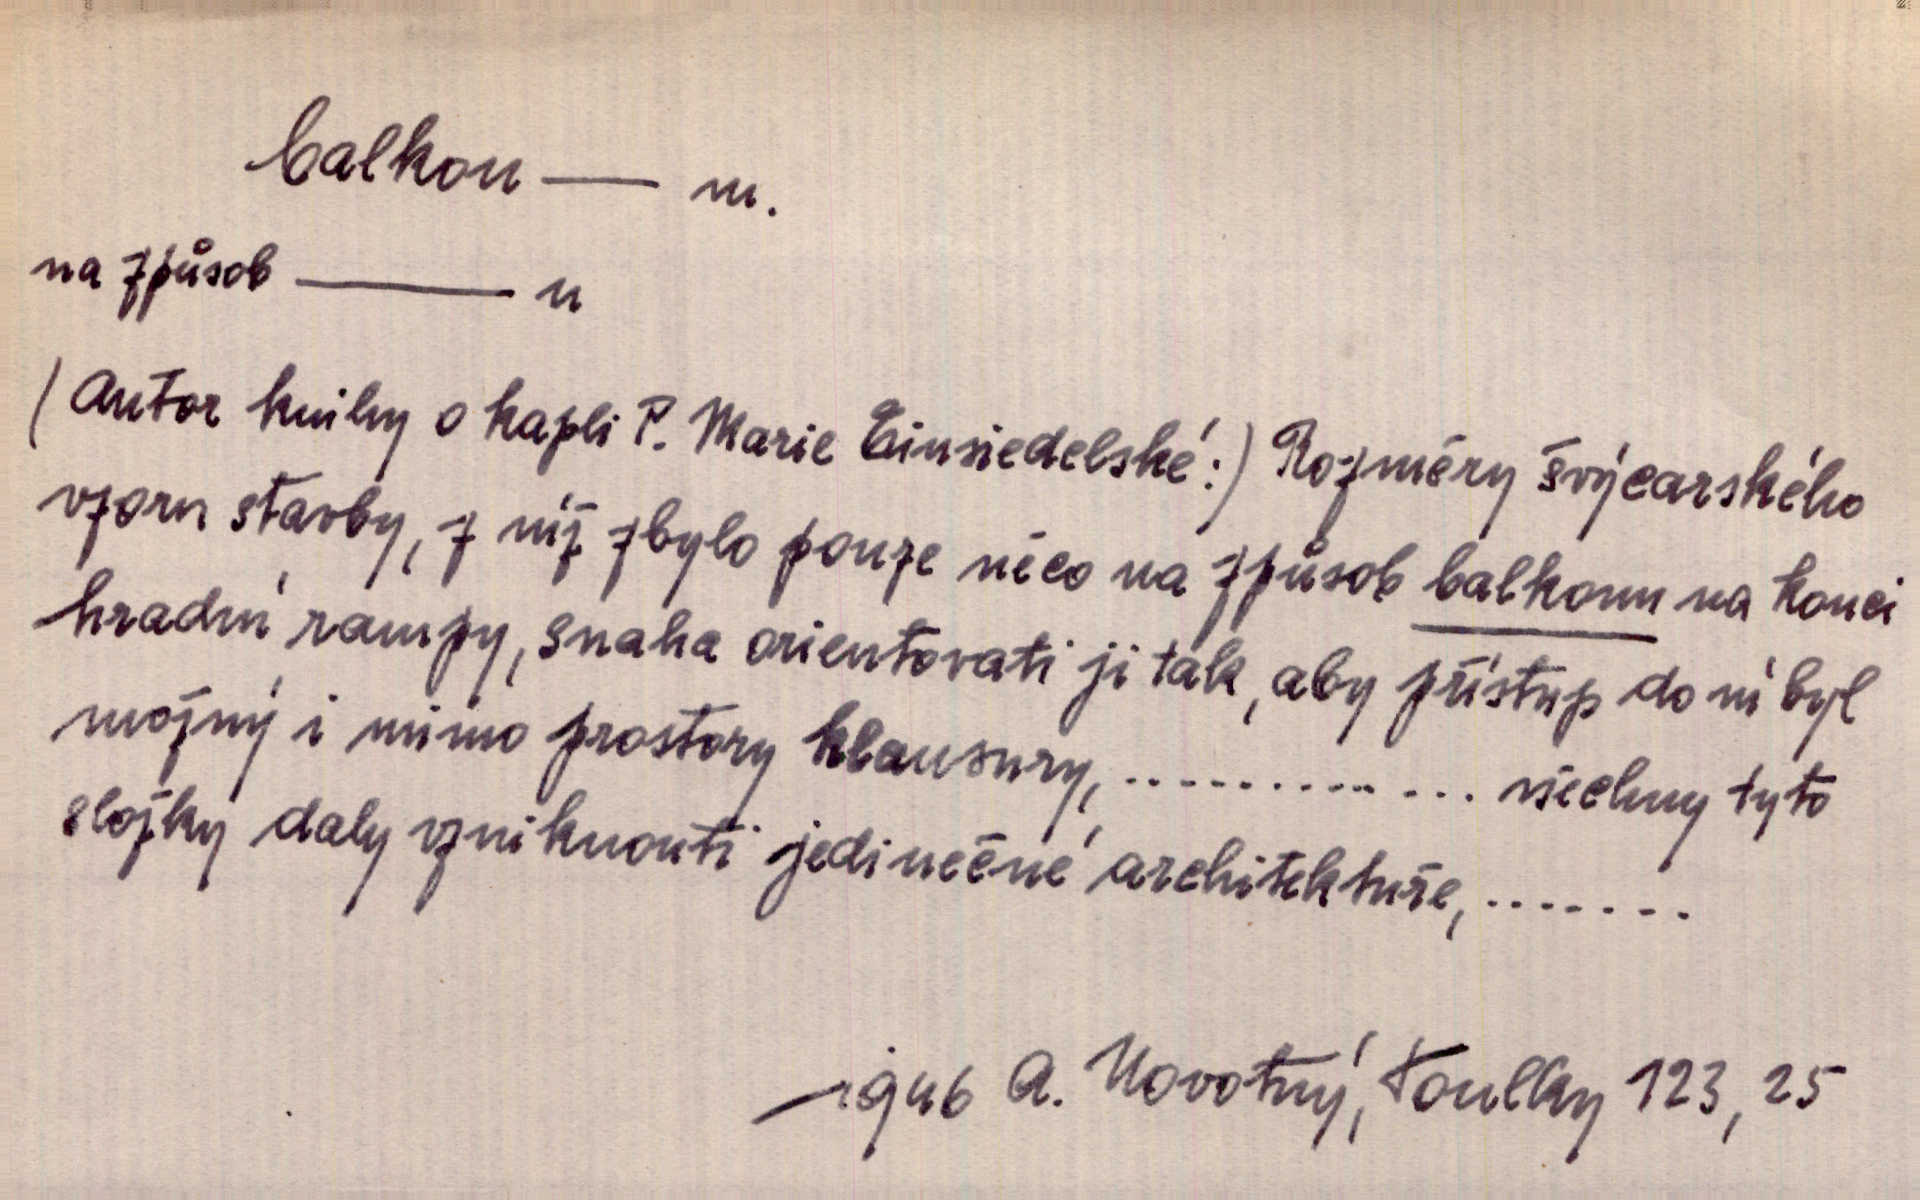 balkon — m.
na způsob — u
(Autor knihy o kapli P. Marie Einsiedelské:) Rozměry švýcarského
vzoru stavby, z níž zbylo pouze něco na způsob balkonu na konci
hradní rampy, snaha orientovati ji tak, aby přístup do ní byl
možný i mimo prostory klausury, .............. všechny tyto
složky daly vzniknouti jedinečné architektuře, .......
1946 A. Novotný, Toulky 123, 25